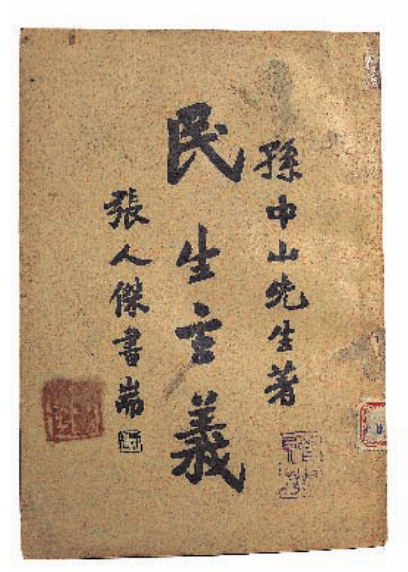 孫中山先生著
民生主義
張人傑書耑